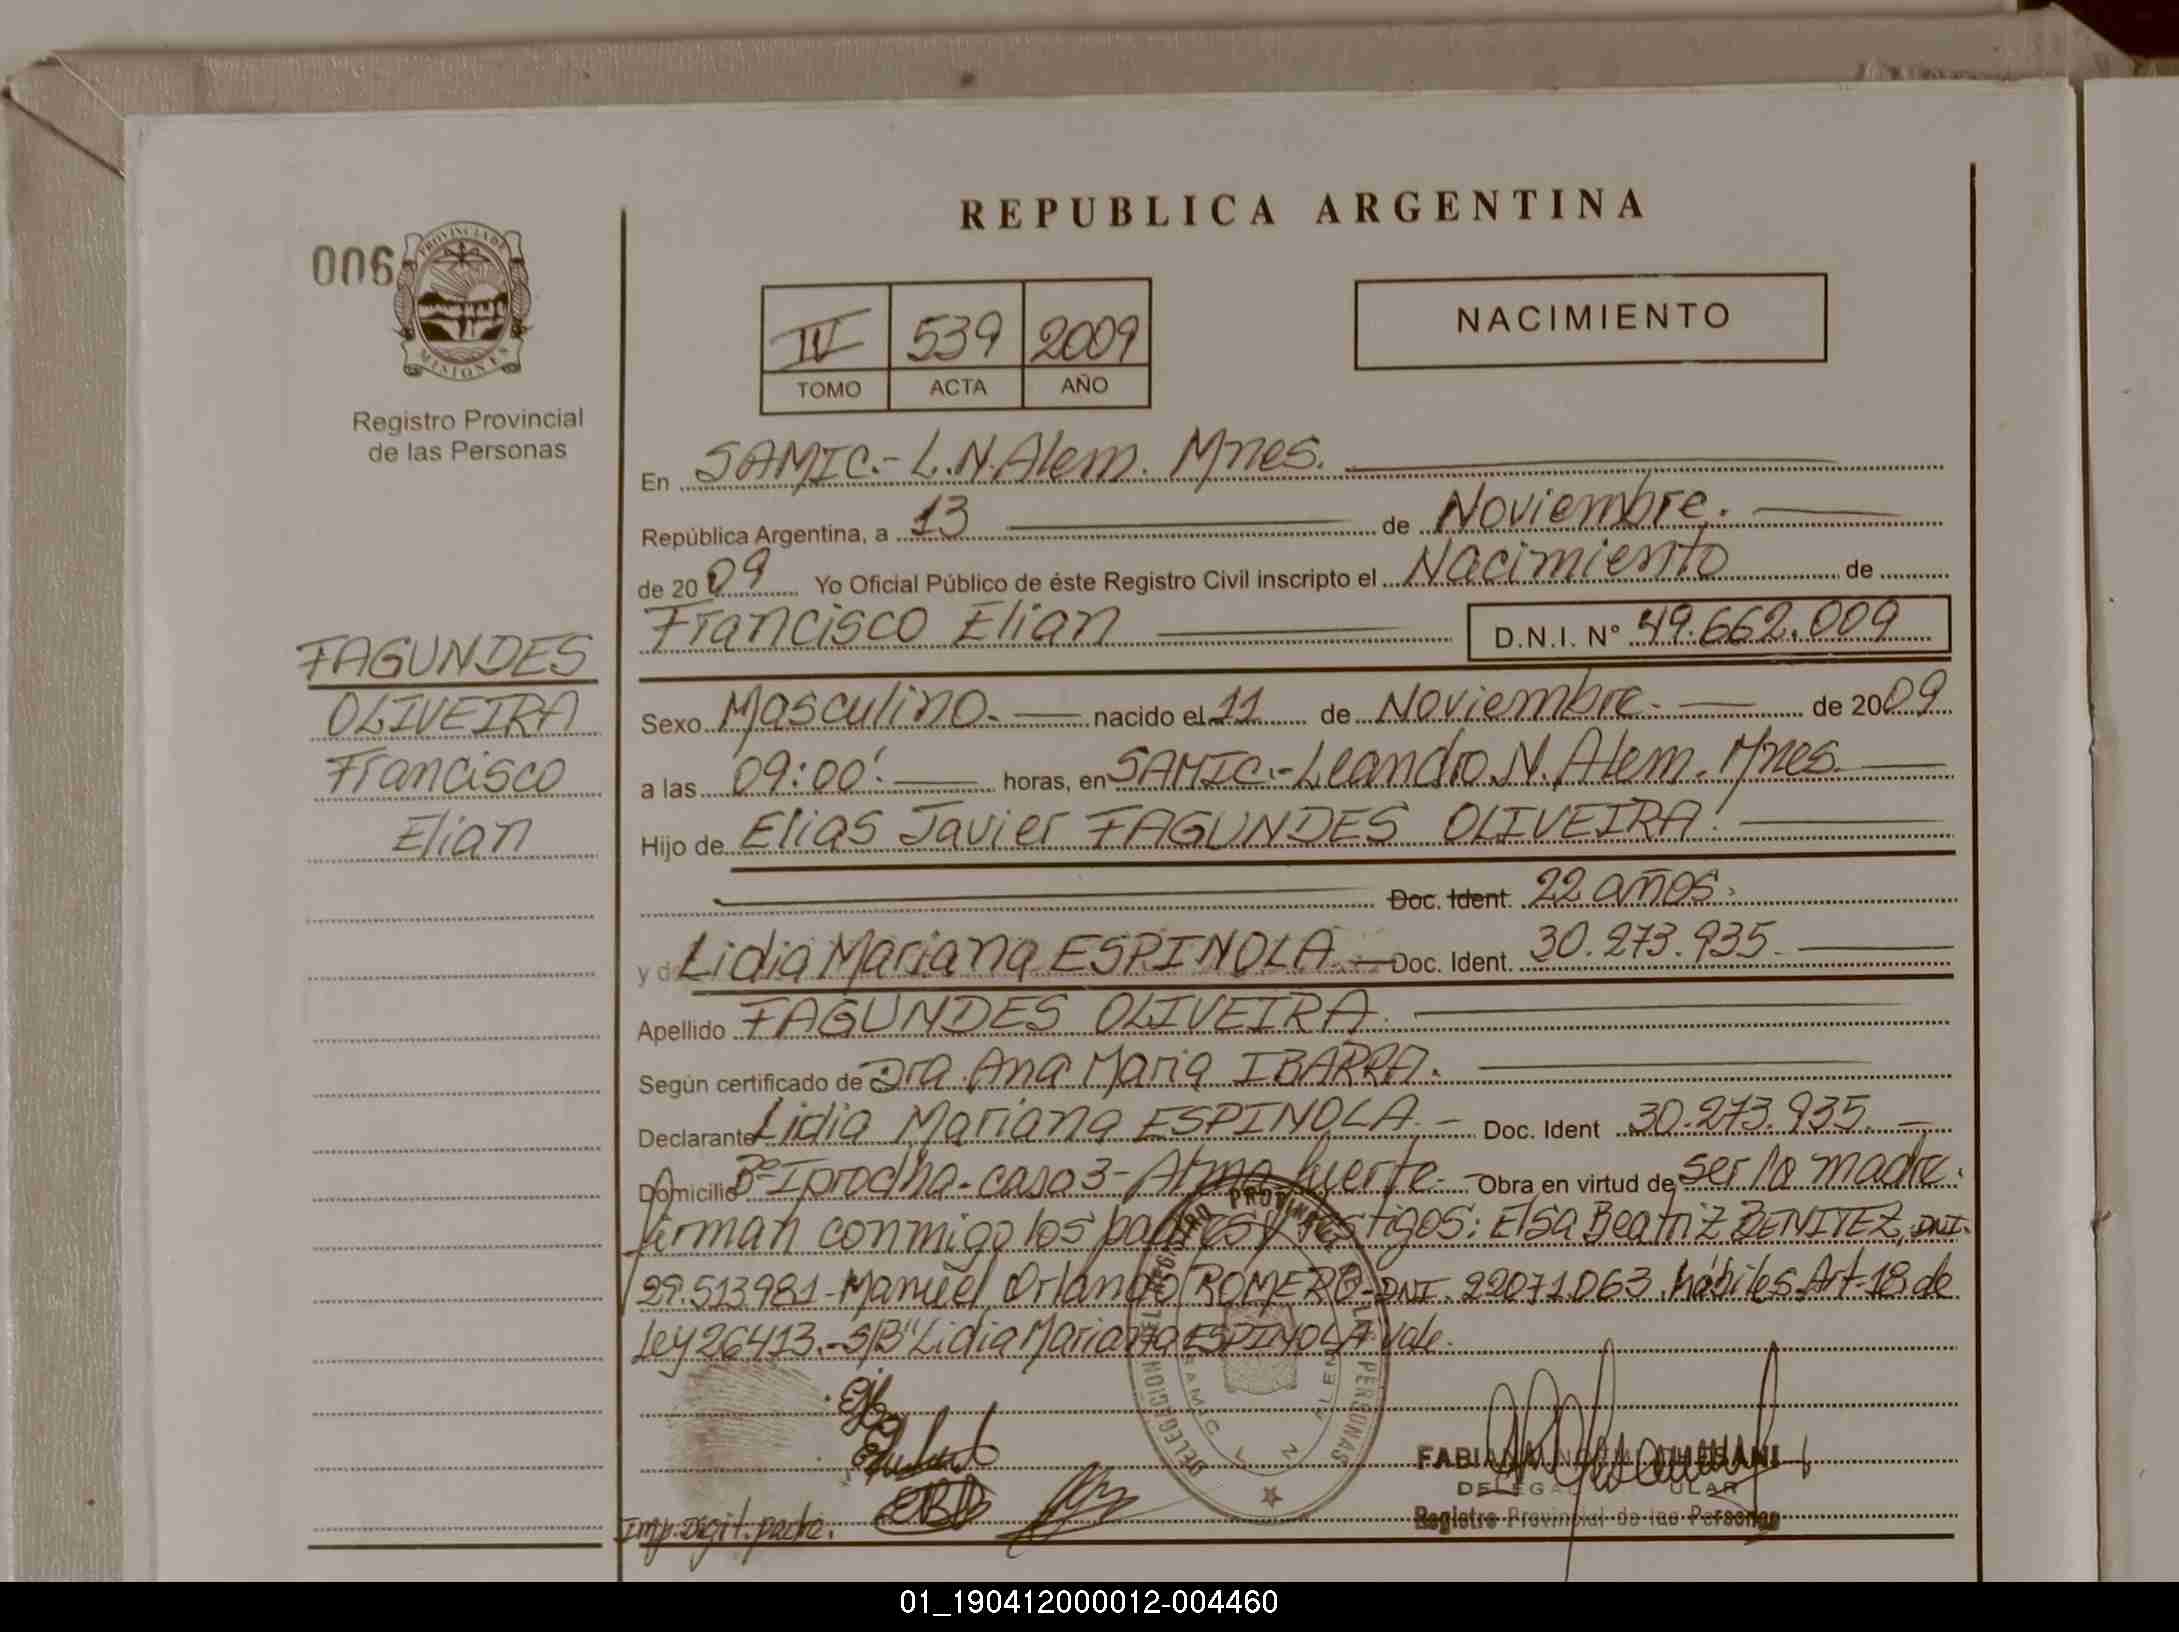 REPUBLICA ARGENTINA
006
PROVINCIA DE
MISIONES
Registro Provincial
de las Personas
IV 539 2009
TOMO ACTA AÑO
NACIMIENTO
FAGUNDES
OLIVEIRA
Francisco
Elian
En SAMIC.- L.N.Alem. Mnes.
República Argentina, a 13 de Noviembre.
de 2009 Yo Oficial Público de éste Registro Civil inscripto el Nacimiento de
Francisco Elian D.N.I. N° 49.662.009
Sexo Masculino.- nacido el 11 de Noviembre.- de 2009
a las 09:00'. horas, en SAMIC.-Leandro N. Alem. Mnes.
Hijo de Elias Javier FAGUNDES OLIVEIRA.
Doc. Ident. 22 años.
y de Lidia Mariana ESPINOLA.- Doc. Ident. 30.273.935.
Apellido FAGUNDES OLIVEIRA.
Según certificado de Dra. Ana Maria IBARRA.
Declarante Lidia Mariana ESPINOLA.- Doc. Ident 30.273.935.-
Domicilio B° Iprodha-casa 3- Alma fuerte.- Obra en virtud de ser la madre.
firman conmigo los padres y testigos: Elsa Beatriz BENITEZ, DNI.
29.513981-Manuel Orlando ROMERO-DNI. 22071.063. hábiles.Art-18 de
Ley 26413.-S/B"Lidia Mariana ESPINOLA vale.
DELEGACION DEL REGISTRO PROVINCIAL DE LAS PERSONAS
SAMIC L N ALEM
EBB
Imp.Digit.padre.
Registro Provincial de las Personas
01_190412000012-004460